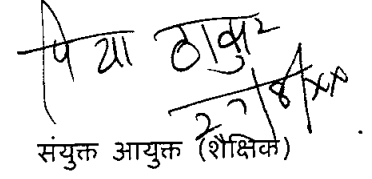 पिया ठाकुर
27/8/xx
संयुक्त आयुक्त (शैक्षिक)